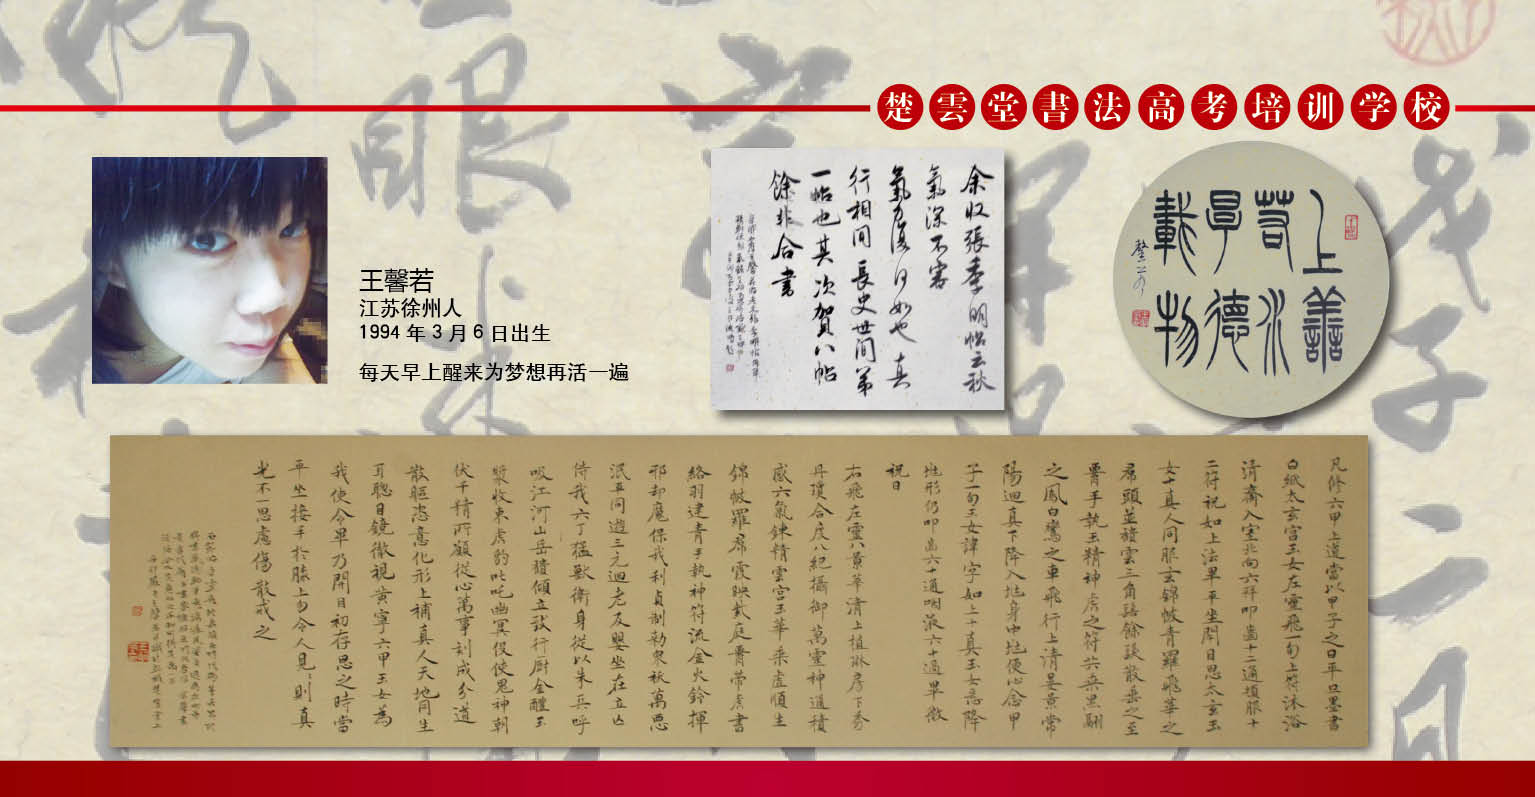 楚雲堂書法高考培训学校
王馨若
江苏徐州人
1994年3月6日出生
每天早上醒来为梦想再活一遍
余收張季明帖云秋
氣深不審
氣力復何如也真
行相間長史世間第
一帖也其次賀八帖
餘非合書
上善
若水
厚德
載物
凡修六甲上道當以甲子之日平旦墨書
白紙太玄宮玉女左靈飛一旬上符沐浴
清齋入室北向六拜叩齒十二通頓服十
二符祝如上法畢平坐閉目思太玄玉
女十真人同服玄錦帔青羅飛華之
帬頭並頹雲三角髻餘髮散垂之至
署手執玉精神虎之符共乘黑翮
之鳳白鸞之車飛行上清晏景常
陽迴真下降入地身中地便心念甲
子一旬玉女諱字如上十真玉女悉降
地形仍叩齒六十通咽液六十過畢微
祝曰
右飛左靈八景華清上植琳房下秀
丹瓊合度八紀攝御萬靈神通積
感六氣鍊精雲宮玉華乘虛順生
錦帔羅帬霞映紫庭腰帶虎書
絡羽建青手執神符流金火鈴揮
邪却魔保我利貞制勒眾祅萬惡
泯平同遊三元迴老反嬰坐在立亡
侍我六丁猛獸衛身從以朱兵呼
吸江河山岳頹傾立致行厨金醴玉
漿收束虎豹叱吒幽冥役使鬼神朝
伏千精所願從心萬事剋成分道
散軀恣意化形上補真人天地同生
耳聰目鏡徹視黃寧六甲玉女為
我使令畢乃開目初存思之時當
平坐接手於膝上勿令人見見則真
光不一思慮傷散戒之